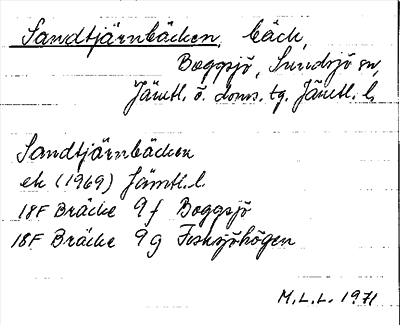 Sandtjärnbäcken, bäck,
Boggsjö, Sundsjö sn,
Jämtl. ö. doms. tg. Jämtl. l.
Sandtjärnbäcken
ek (1969) Jämtl. l.
18F Bräcke 9f Boggsjö
18F Bräcke 9g Fisksjöhögen
M.L.L. 1971